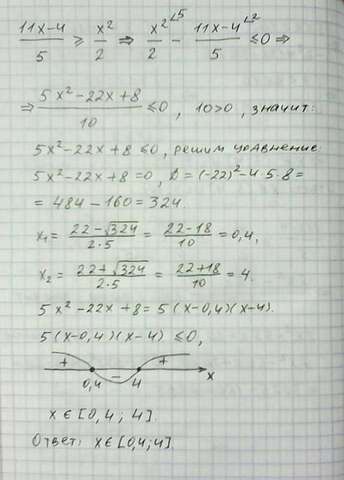 (11x-4)/5 ⩾ x²/2 ⇒ x²/2 ∠5 - (11x-4)/5 ∠2 ≤0 ⇒
⇒ (5x²-22x+8)/10 ≤0, 10>0, значит:
5x²-22x+8 ≤0, решим уравнение
5x²-22x+8=0, D=(-22)²-4·5·8=
= 484-160=324.
x₁= (22-√324)/(2·5) = (22-18)/10 = 0,4,
x₂= (22+√324)/(2·5) = (22+18)/10 = 4.
5x²-22x+8=5(x-0,4)(x-4).
5(x-0,4)(x-4) ≤0,
+ - +
0,4 4 x
x∈[0,4; 4].
Ответ: x∈[0,4;4].